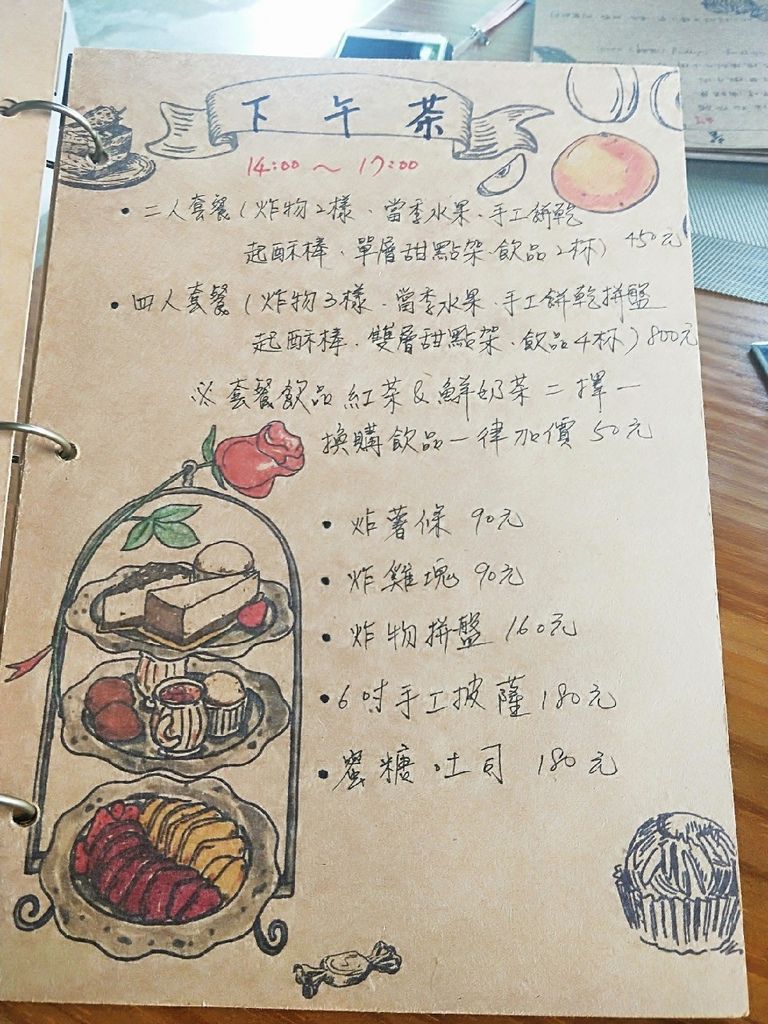 下午茶
14:00 ~ 17:00
• 二人套餐 (炸物2樣、當季水果、手工餅乾
起酥棒、單層甜點架、飲品2杯) 450元
• 四人套餐 (炸物3樣、當季水果、手工餅乾拼盤
起酥棒、雙層甜點架、飲品4杯) 800元
※ 套餐飲品 紅茶 & 鮮奶茶 二擇一
換購飲品一律加價 50元
• 炸薯條 90元
• 炸雞塊 90元
• 炸物拼盤 160元
• 6吋手工披薩 180元
• 蜜糖吐司 180元